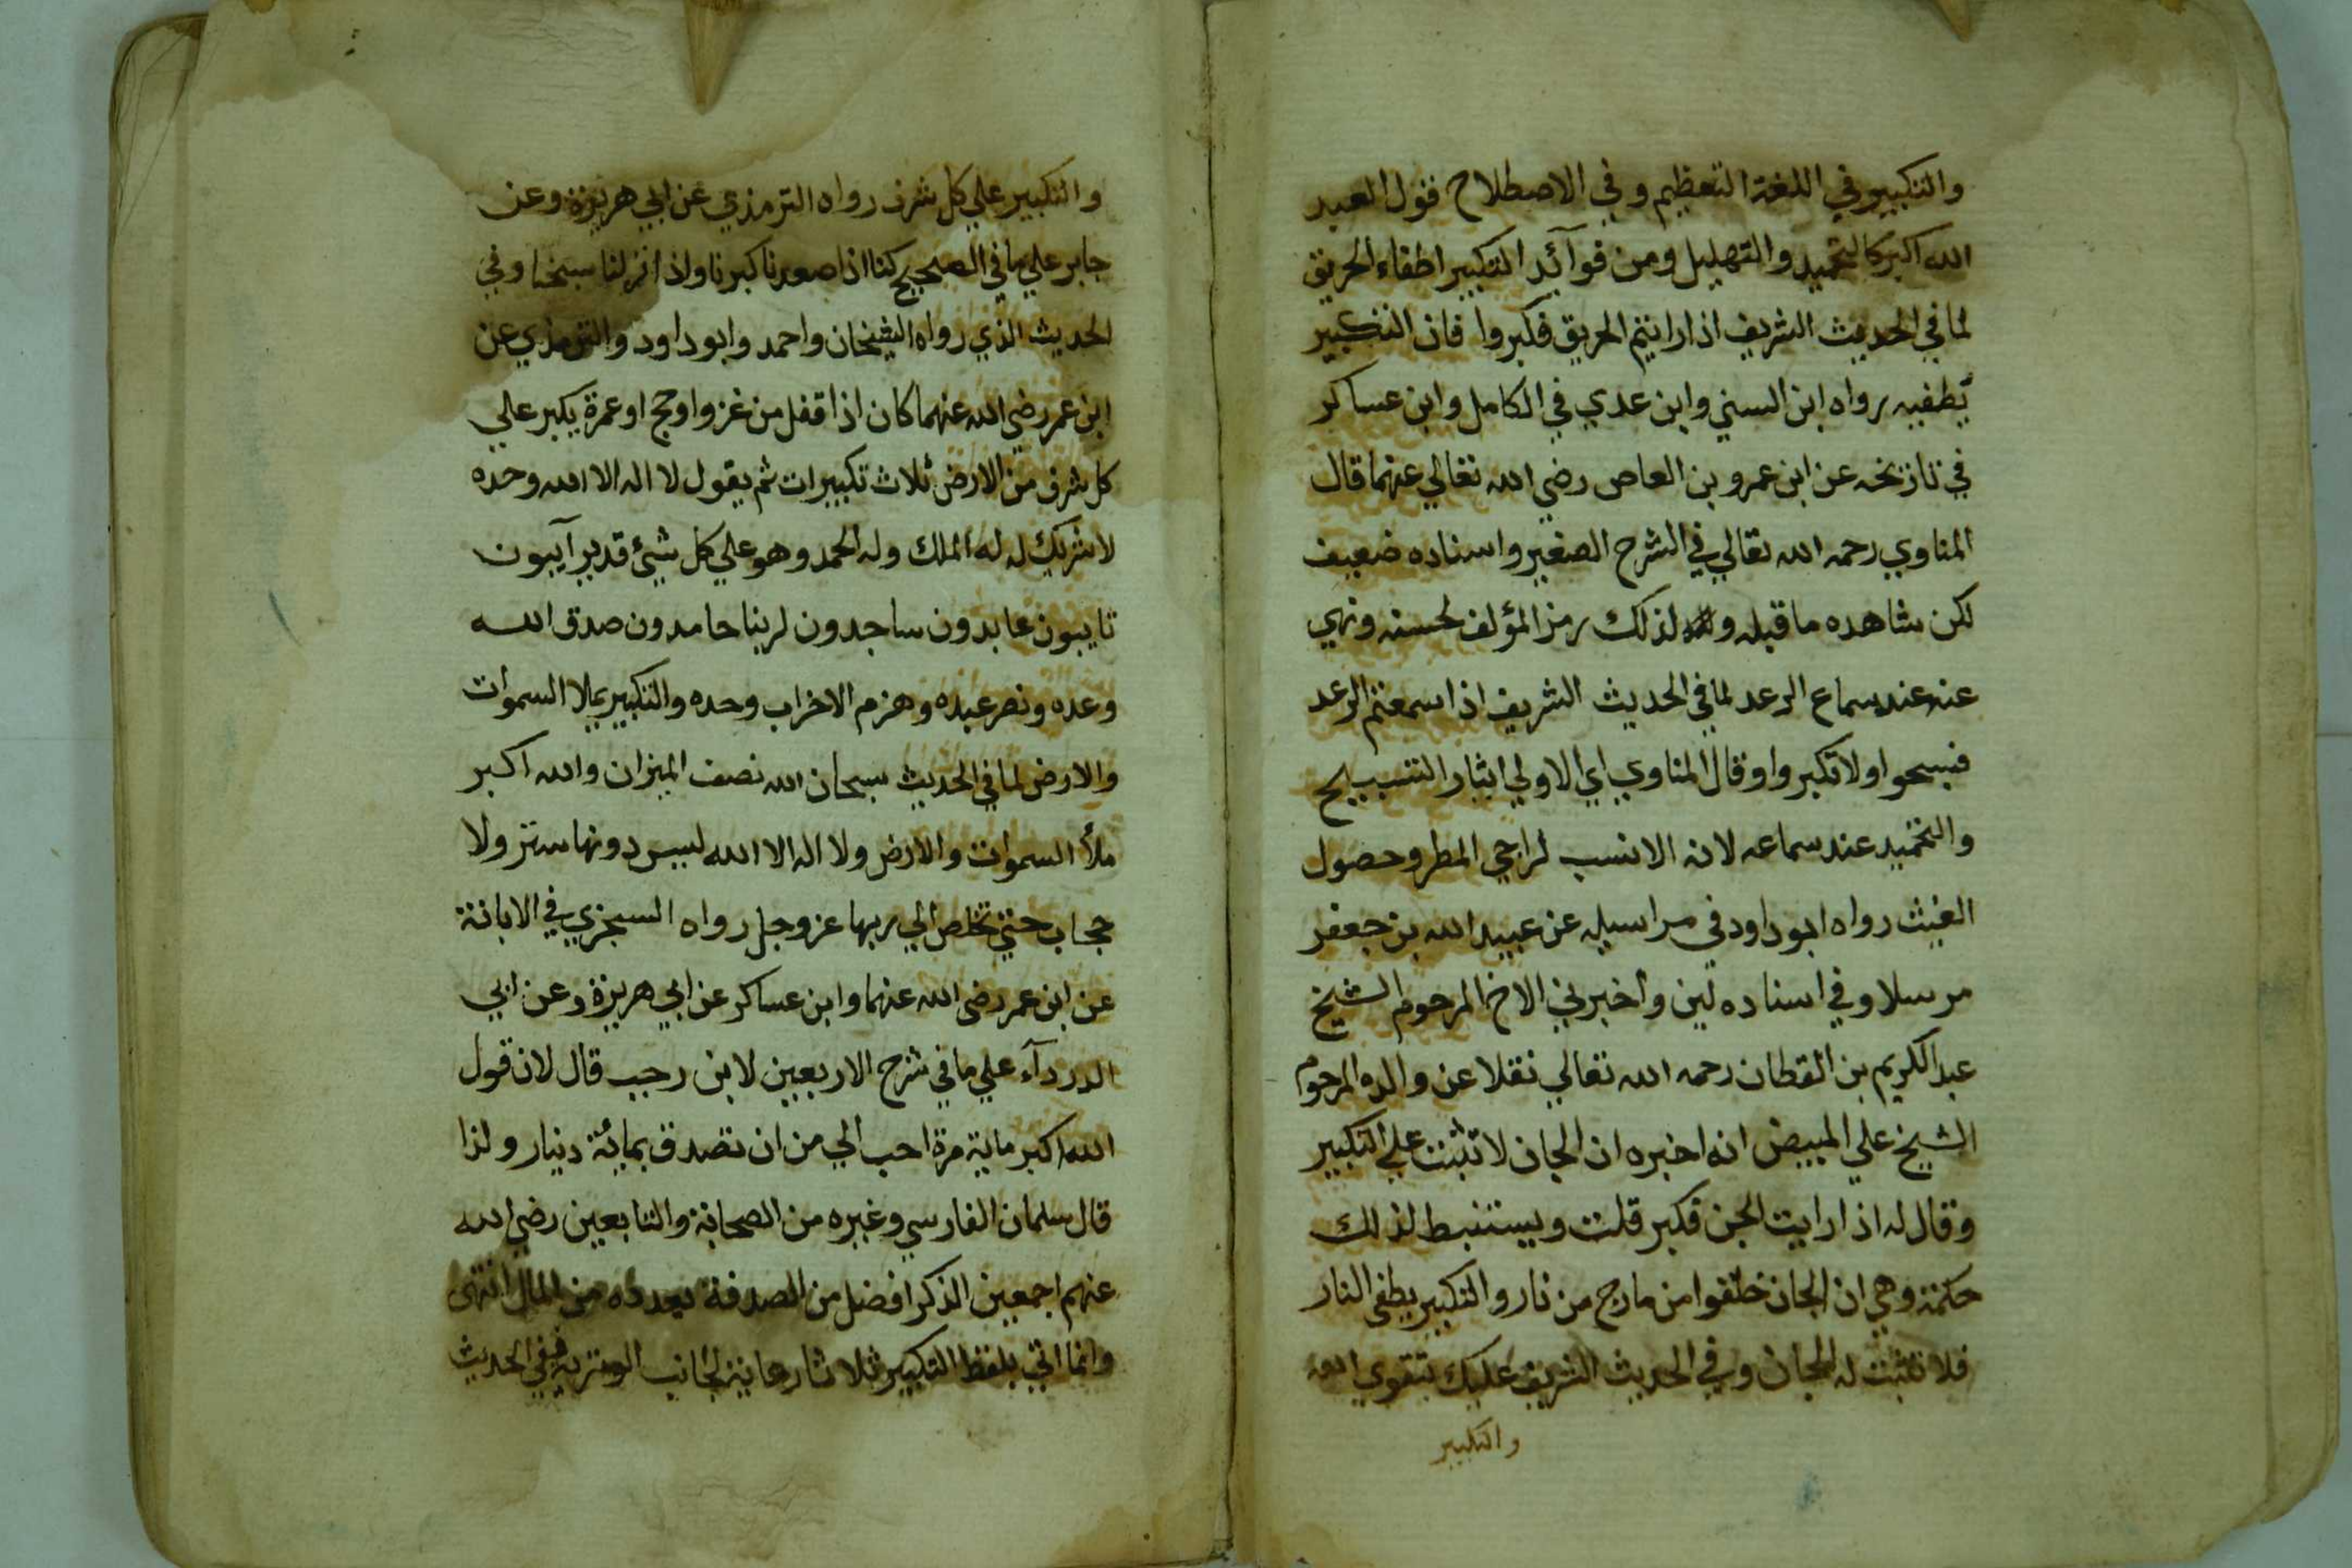 والتكبير في اللغة التعظيم وفي الاصطلاح قول العبد
الله اكبر كالتحميد والتهليل ومن فوآئد التكبير اطفاء الحريق
لما في الحديث الشريف اذا رايتم الحريق فكبروا فان التكبير
يطفيه رواه ابن السني وابن عدي في الكامل وابن عساكر
في تاريخه عن ابن عمرو بن العاص رضي الله تعالي عنهما قال
المناوي رحمه الله تعالي في الشرح الصغير واسناده ضعيف
لكن شاهده ما قبله و لذلك رمز المؤلف لحسنه ونهي
عنه عند سماع الرعد لما في الحديث الشريف اذا سمعتم الرعد
فسبحوا ولا تكبروا وقال المناوي اي الاولي ايثار التسبيح
والتحميد عند سماعه لانه الانسب لراجي المطر وحصول
الغيث رواه ابو داود في مراسيله عن عبيد الله بن جعفر
مرسلا وفي اسناده لين واخبرني الاخ المرحوم الشيخ
عبد الكريم بن القطان رحمه الله تعالي نقلا عن والده المرحوم
الشيخ علي المبيض انه اخبره ان الجان لا تثبت علي التكبير
وقال له اذا رايت الجن فكبر قلت ويستنبط لذلك
حكمة وهي ان الجان خلقوا من مارج من نار والتكبير يطفي النار
فلا تثبت له الجان وفي الحديث الشريف عليك بتقوي الله
والتكبير
والتكبير علي كل شرف رواه الترمذي عن ابي هريرة وعن
جابر علي ما في الصحيح كنا اذا صعدنا كبرنا واذا انزلنا سبحنا وفي
الحديث الذي رواه الشيخان واحمد وابو داود والترمذي عن
ابن عمر رضي الله عنهما كان اذا قفل من غزو او حج او عمرة يكبر علي
كل شرف من الارض ثلاث تكبيرات ثم يقول لا اله الا الله وحده
لا شريك له له الملك وله الحمد وهو علي كل شيئ قدير آيبون
تايبون عابدون ساجدون لربنا حامدون صدق الله
وعده ونصر عبده وهزم الاحزاب وحده والتكبير يملا السموات
والارض لما في الحديث سبحان الله نصف الميزان والله اكبر
ملأ السموات والارض ولا اله الا الله ليس دونها ستر ولا
حجاب حتي تخلص الي ربها عز وجل رواه السجزي في الابانة
عن ابن عمر رضي الله عنهما وابن عساكر عن ابي هريرة وعن ابي
الدردآء علي ما في شرح الاربعين لابن رجب قال لان قول
الله اكبر ماية مرة احب الي من ان تصدق بمائة دينار ولذا
قال سلمان الفارسي وغيره من الصحابة والتابعين رضي الله
عنهم اجمعين الذكر افضل من الصدقة بعدده من المال انتهي
وانما اتي بلفظ التكبير ثلاثا رعاية لجانب الوترية ففي الحديث